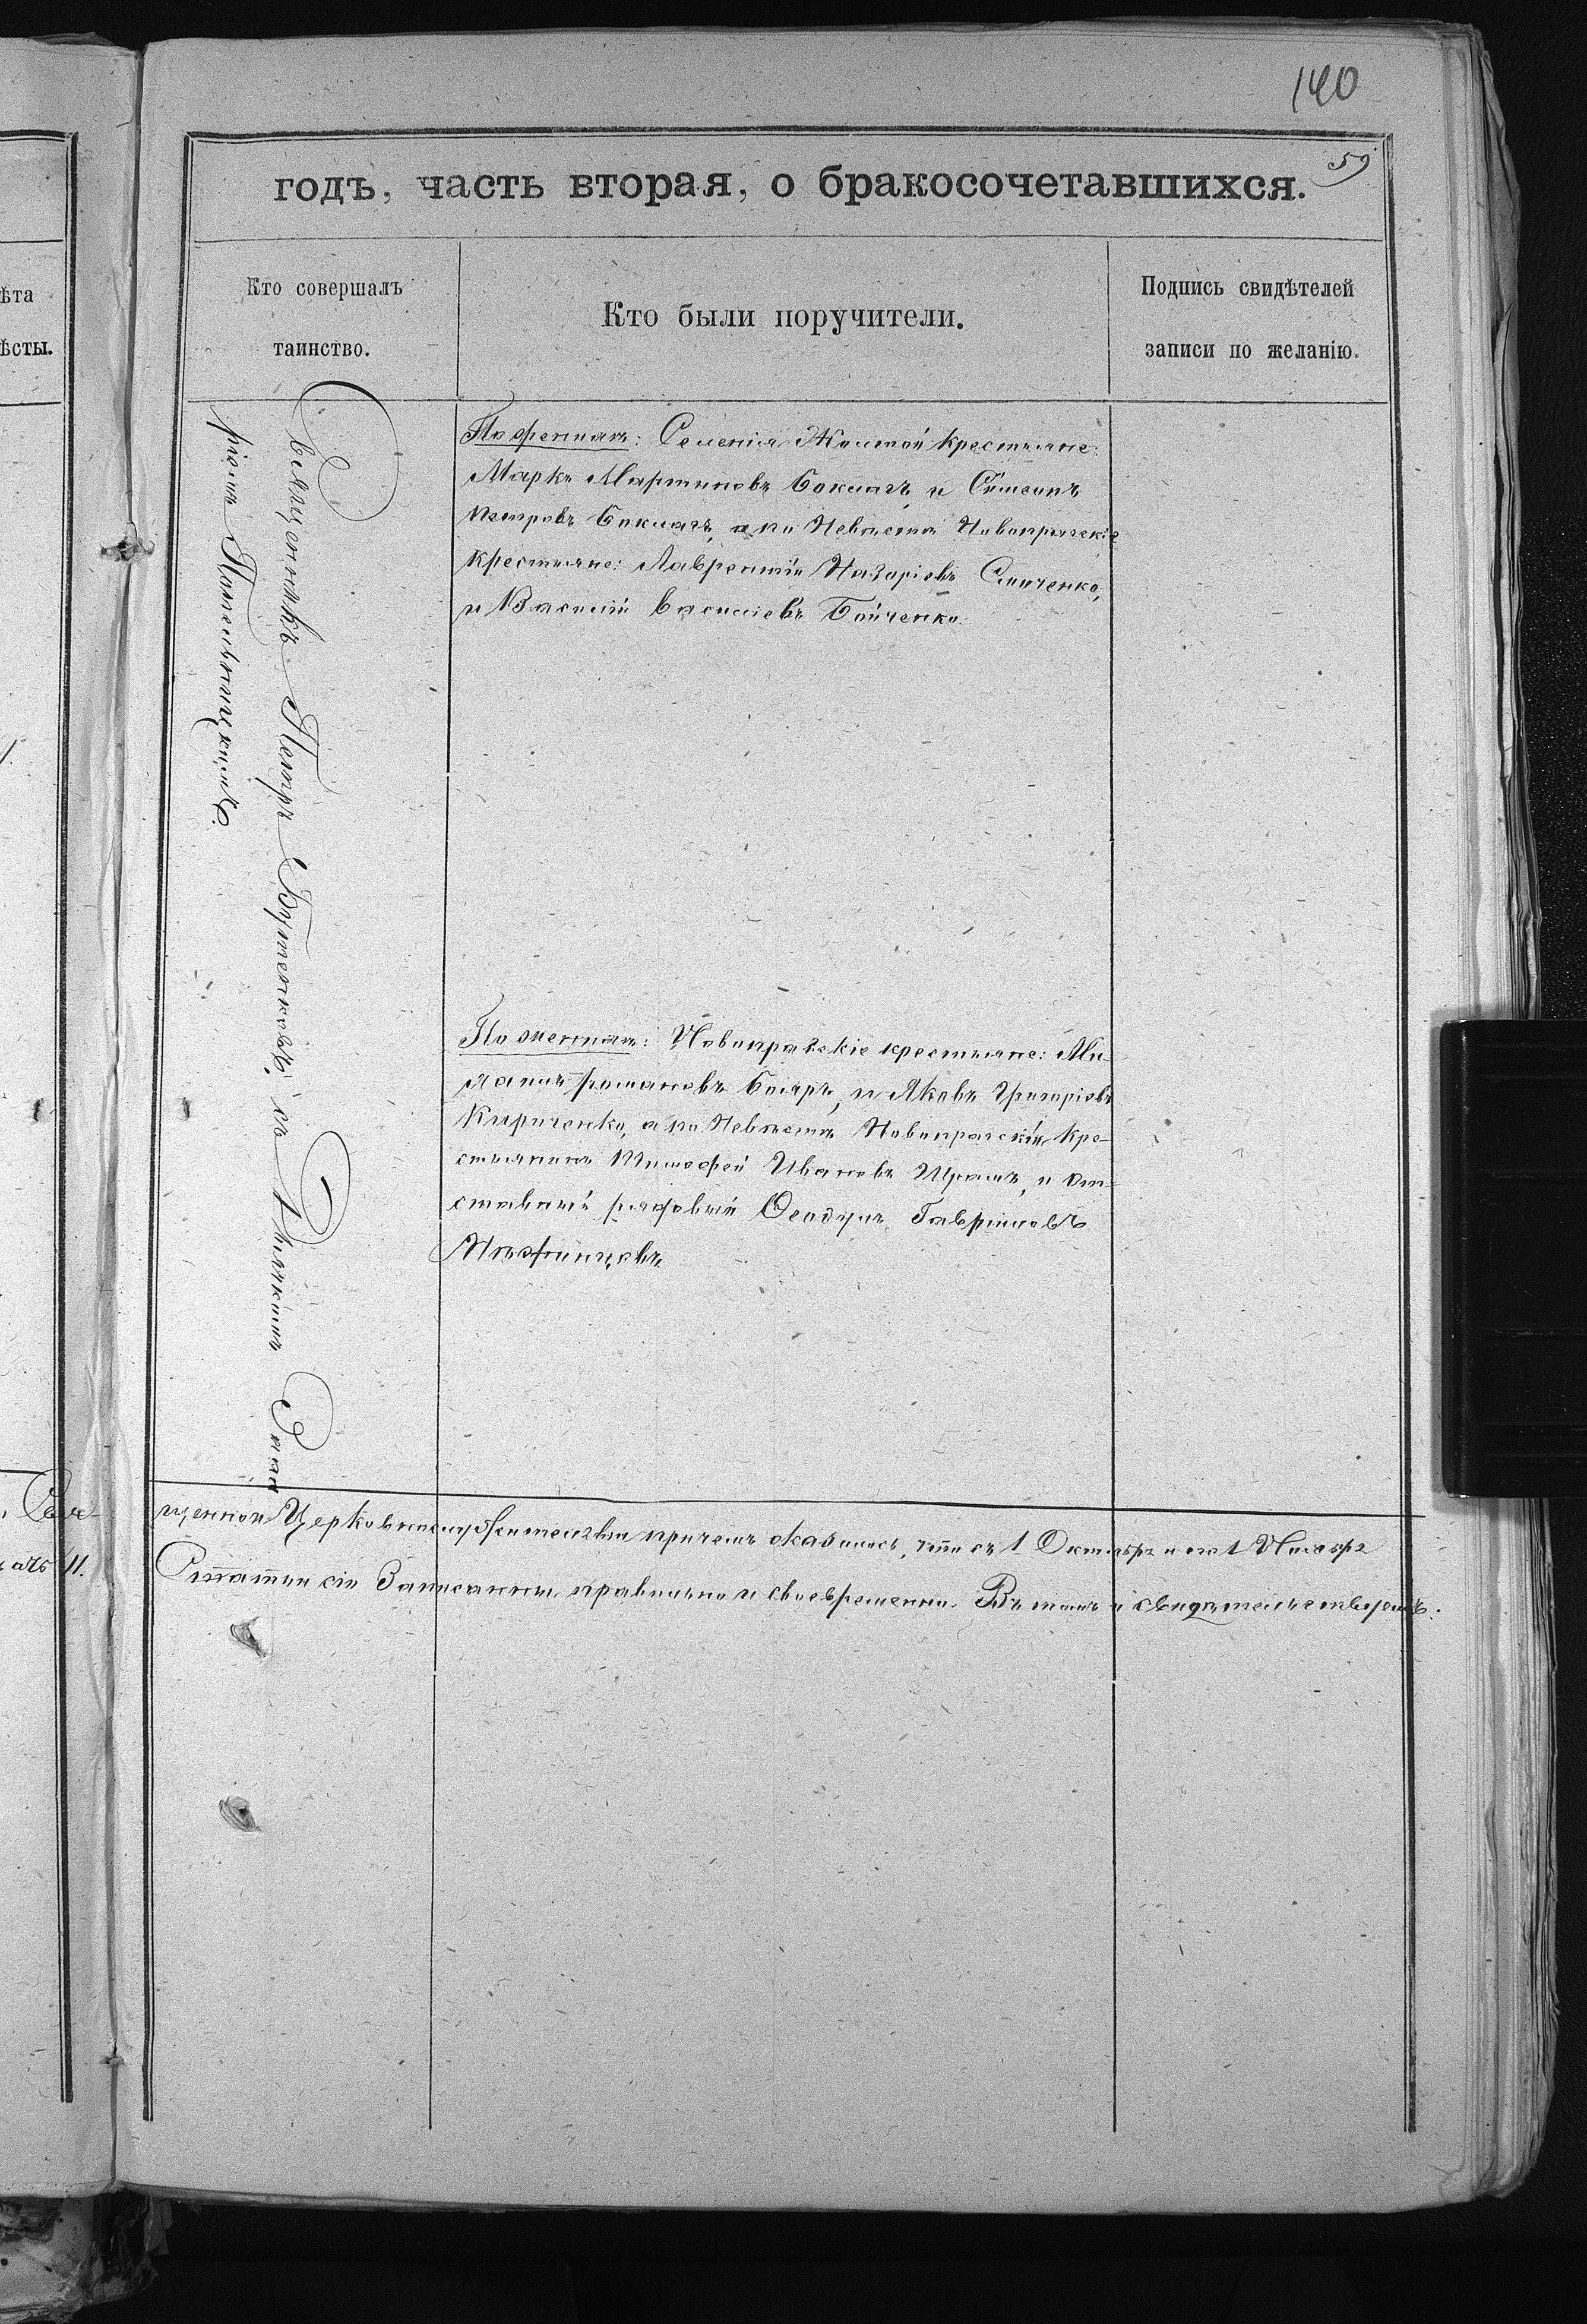 140
59
годъ, часть вторая, о бракосочетавшихся.
ѣта
ѣсты.
Кто совершалъ
таинство.
Кто были поручители.
Подпись свидѣтелей
записи по желанію.
Священникъ Петръ Бутенковъ, съ
ріемъ
По женихѣ: Селенія Жолтой крестьяне:
Маркъ Мартиновъ Боклагъ и Симеонъ
Петровъ Боклагъ, а по Невѣстѣ Новопражскіе
крестьяне: Лаврентій Назаріевъ
и Василій Василіевъ Бойченко
По женихѣ: Новопражскіе крестьяне:
Романовъ Бояръ, и Яковъ Григоріевъ
Кириченко, а по Невѣстѣ Новопражскій кре-
стьянинъ Тимофей Ивановъ и от-
ставный рядовый Гавріиловъ
Нѣжинцовъ
11.
Церковному причемъ оказалось, что съ 1 Октября и по 1 Ноября
Статьи сіи записанны правильно и своевременно. Въ томъ и свидѣтельствуемъ: